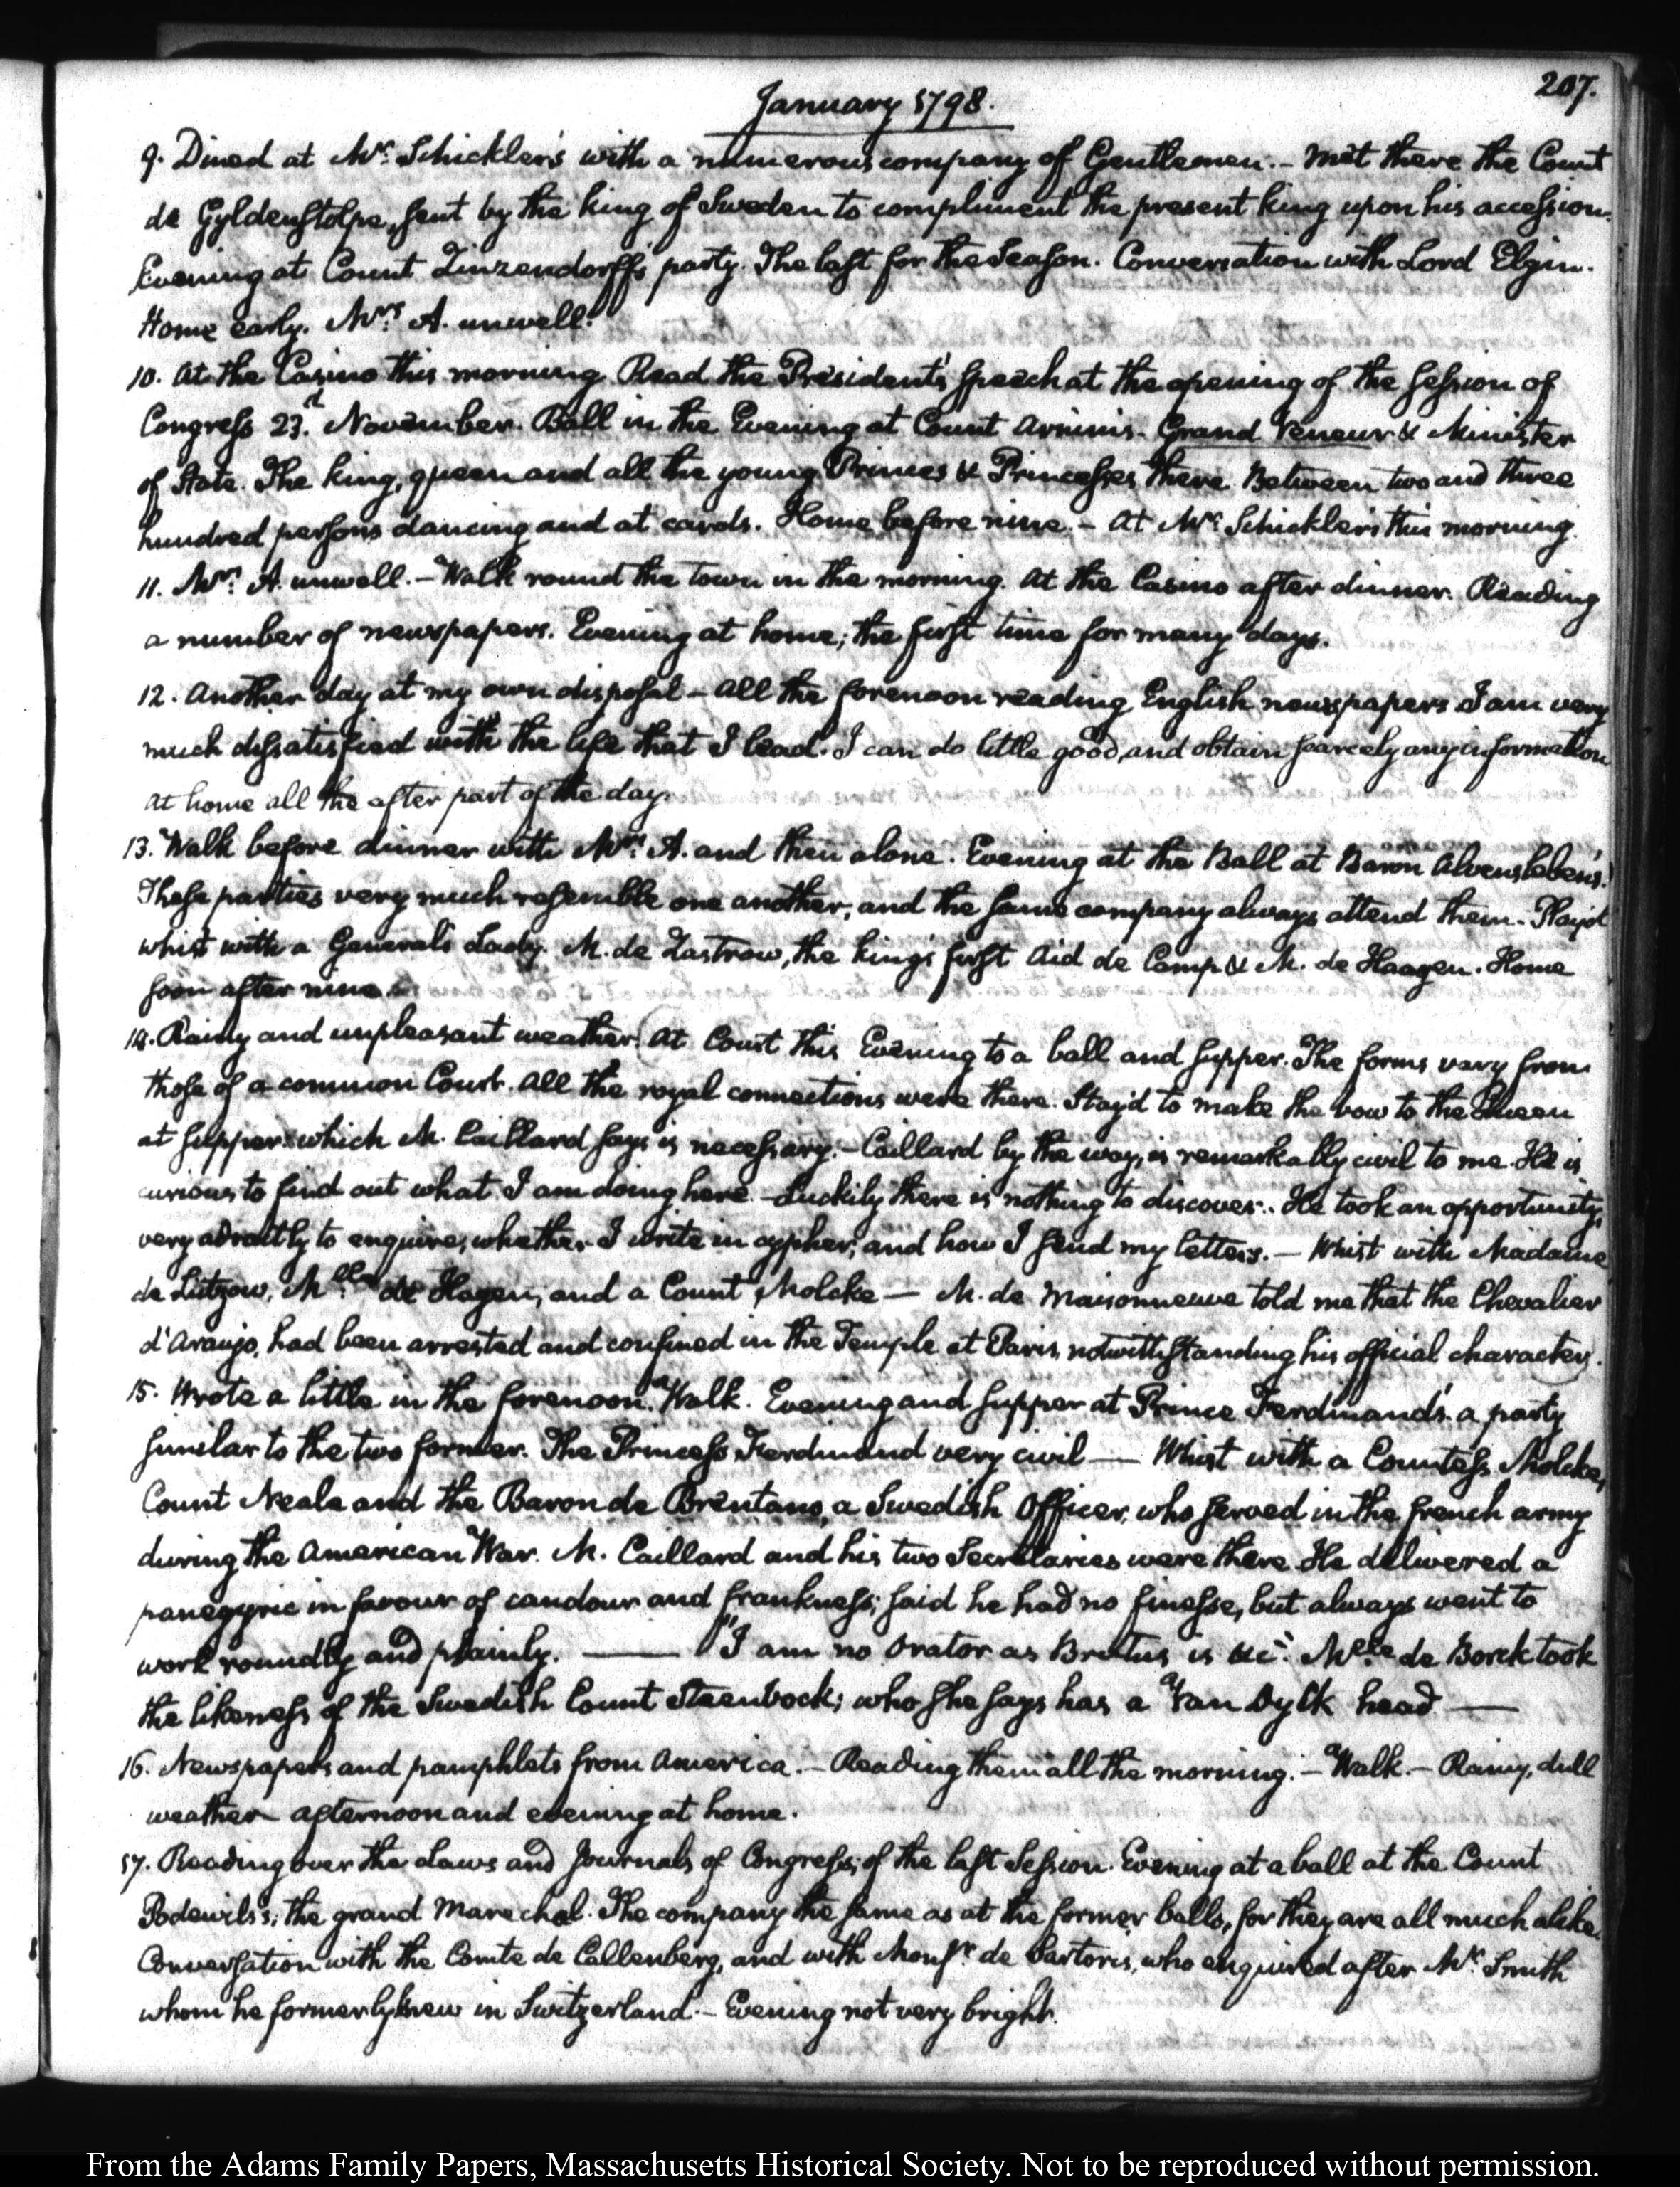 207.
January 1798.
9. Dined at Mr. Schickler's with a numerous company of Gentlemen. - Met there the Count
de Gyldenstolpe, sent by the king of Sweden to compliment the present king upon his accession.
Evening at Count Zinzendorff's party. The last for the Season. Conversation with Lord Elgin.
Home early. Mrs. A. unwell.
10. At the Casino this morning. Read the President's speech at the opening of the session of
Congress 23d. November. Ball in the Evening at Count Arnim's. Grand Veneur & Minister
of State. The king, queen and all the young Princes & Princesses there. Between two and three
hundred persons dancing and at cards. Home before nine. - At Mr. Schickler's this morning.
11. Mrs. A. unwell. - Walk round the town in the morning. At the Casino after dinner. Reading
a number of newspapers. Evening at home; the first time for many days.
12. Another day at my own disposal - All the forenoon reading English newspapers. I am very
much dissatisfied with the life that I lead. I can do little good, and obtain scarcely any information
At home all the after part of the day.
13. Walk before dinner with Mrs. A. and then alone. Evening at the Ball at Baron Alvensleben's.
These parties very much resemble one another, and the same company always attend them. Play'd
whist with a General's Lady. M. de Zastrow, the king's first Aid de Camp & M. de Haagen. Home
soon after nine.
14. Rainy and unpleasant weather. At Court this Evening to a ball and supper. The forms vary from
those of a common Court. All the royal connections were there. Stay'd to make the bow to the Queen
at supper: which M. Caillard says is necessary. - Caillard by the way, is remarkably civil to me. He is
curious to find out what I am doing here - Luckily there is nothing to discover. He took an opportunity,
very adroitly to enquire, whether I write in cypher, and how I send my letters. - Whist with Madame
de Lützow, Mlle. de Hagen, and a Count Molcke — M. de Maisonneuve told me that the Chevalier
d'Araujo, had been arrested and confined in the Temple at Paris, notwithstanding his official character.
15. Wrote a little in the forenoon. Walk. Evening and supper at Prince Ferdinand's. a party
similar to the two former. The Princess Ferdinand very civil — Whist with a Countess Molcke,
Count Neale and the Baron de Brentano, a Swedish Officer, who served in the french army
during the American War. M. Caillard and his two Secretaries were there. He delivered a
panegyric in favour of candour and frankness; said he had no finesse, but always went to
work roundly and plainly. — "I am no Orator as Brutus is &c." Mlle. de Borck took
the likeness of the Swedish Count Steenbock; who she says has a Van Dyck head —
16. Newspapers and pamphlets from America. - Reading them all the morning. - Walk. - Rainy, dull
weather - afternoon and evening at home.
17. Reading over the Laws and Journals of Congress, of the last Session. Evening at a ball at the Count
Podewils's; the grand Marechal. The company the same as at the former balls, for they are all much alike.
Conversation with the Comte de Callenberg, and with Monsr. de Sartoris, who enquired after Mr. Smith
whom he formerly knew in Switzerland. - Evening not very bright.
From the Adams Family Papers, Massachusetts Historical Society. Not to be reproduced without permission.